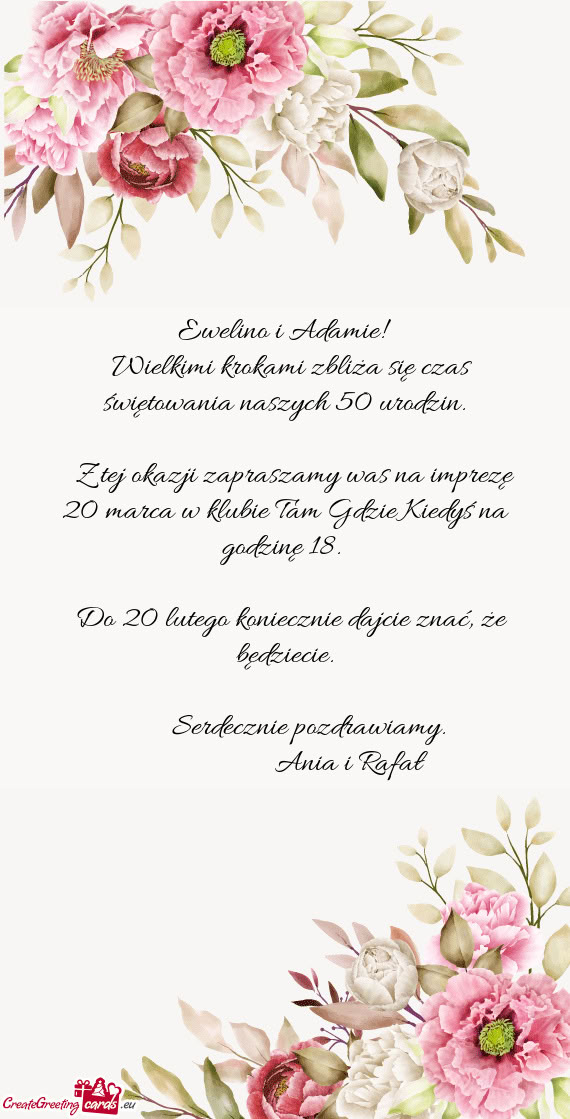 Ewelino i Adamie!
Wielkimi krokami zbliża się czas
świętowania naszych 50 urodzin.
Z tej okazji zapraszamy was na imprezę
20 marca w klubie Tam Gdzie Kiedyś na
godzinę 18.
Do 20 lutego koniecznie dajcie znać, że
będziecie.
Serdecznie pozdrawiamy.
Ania i Rafał
CreateGreeting cards .eu